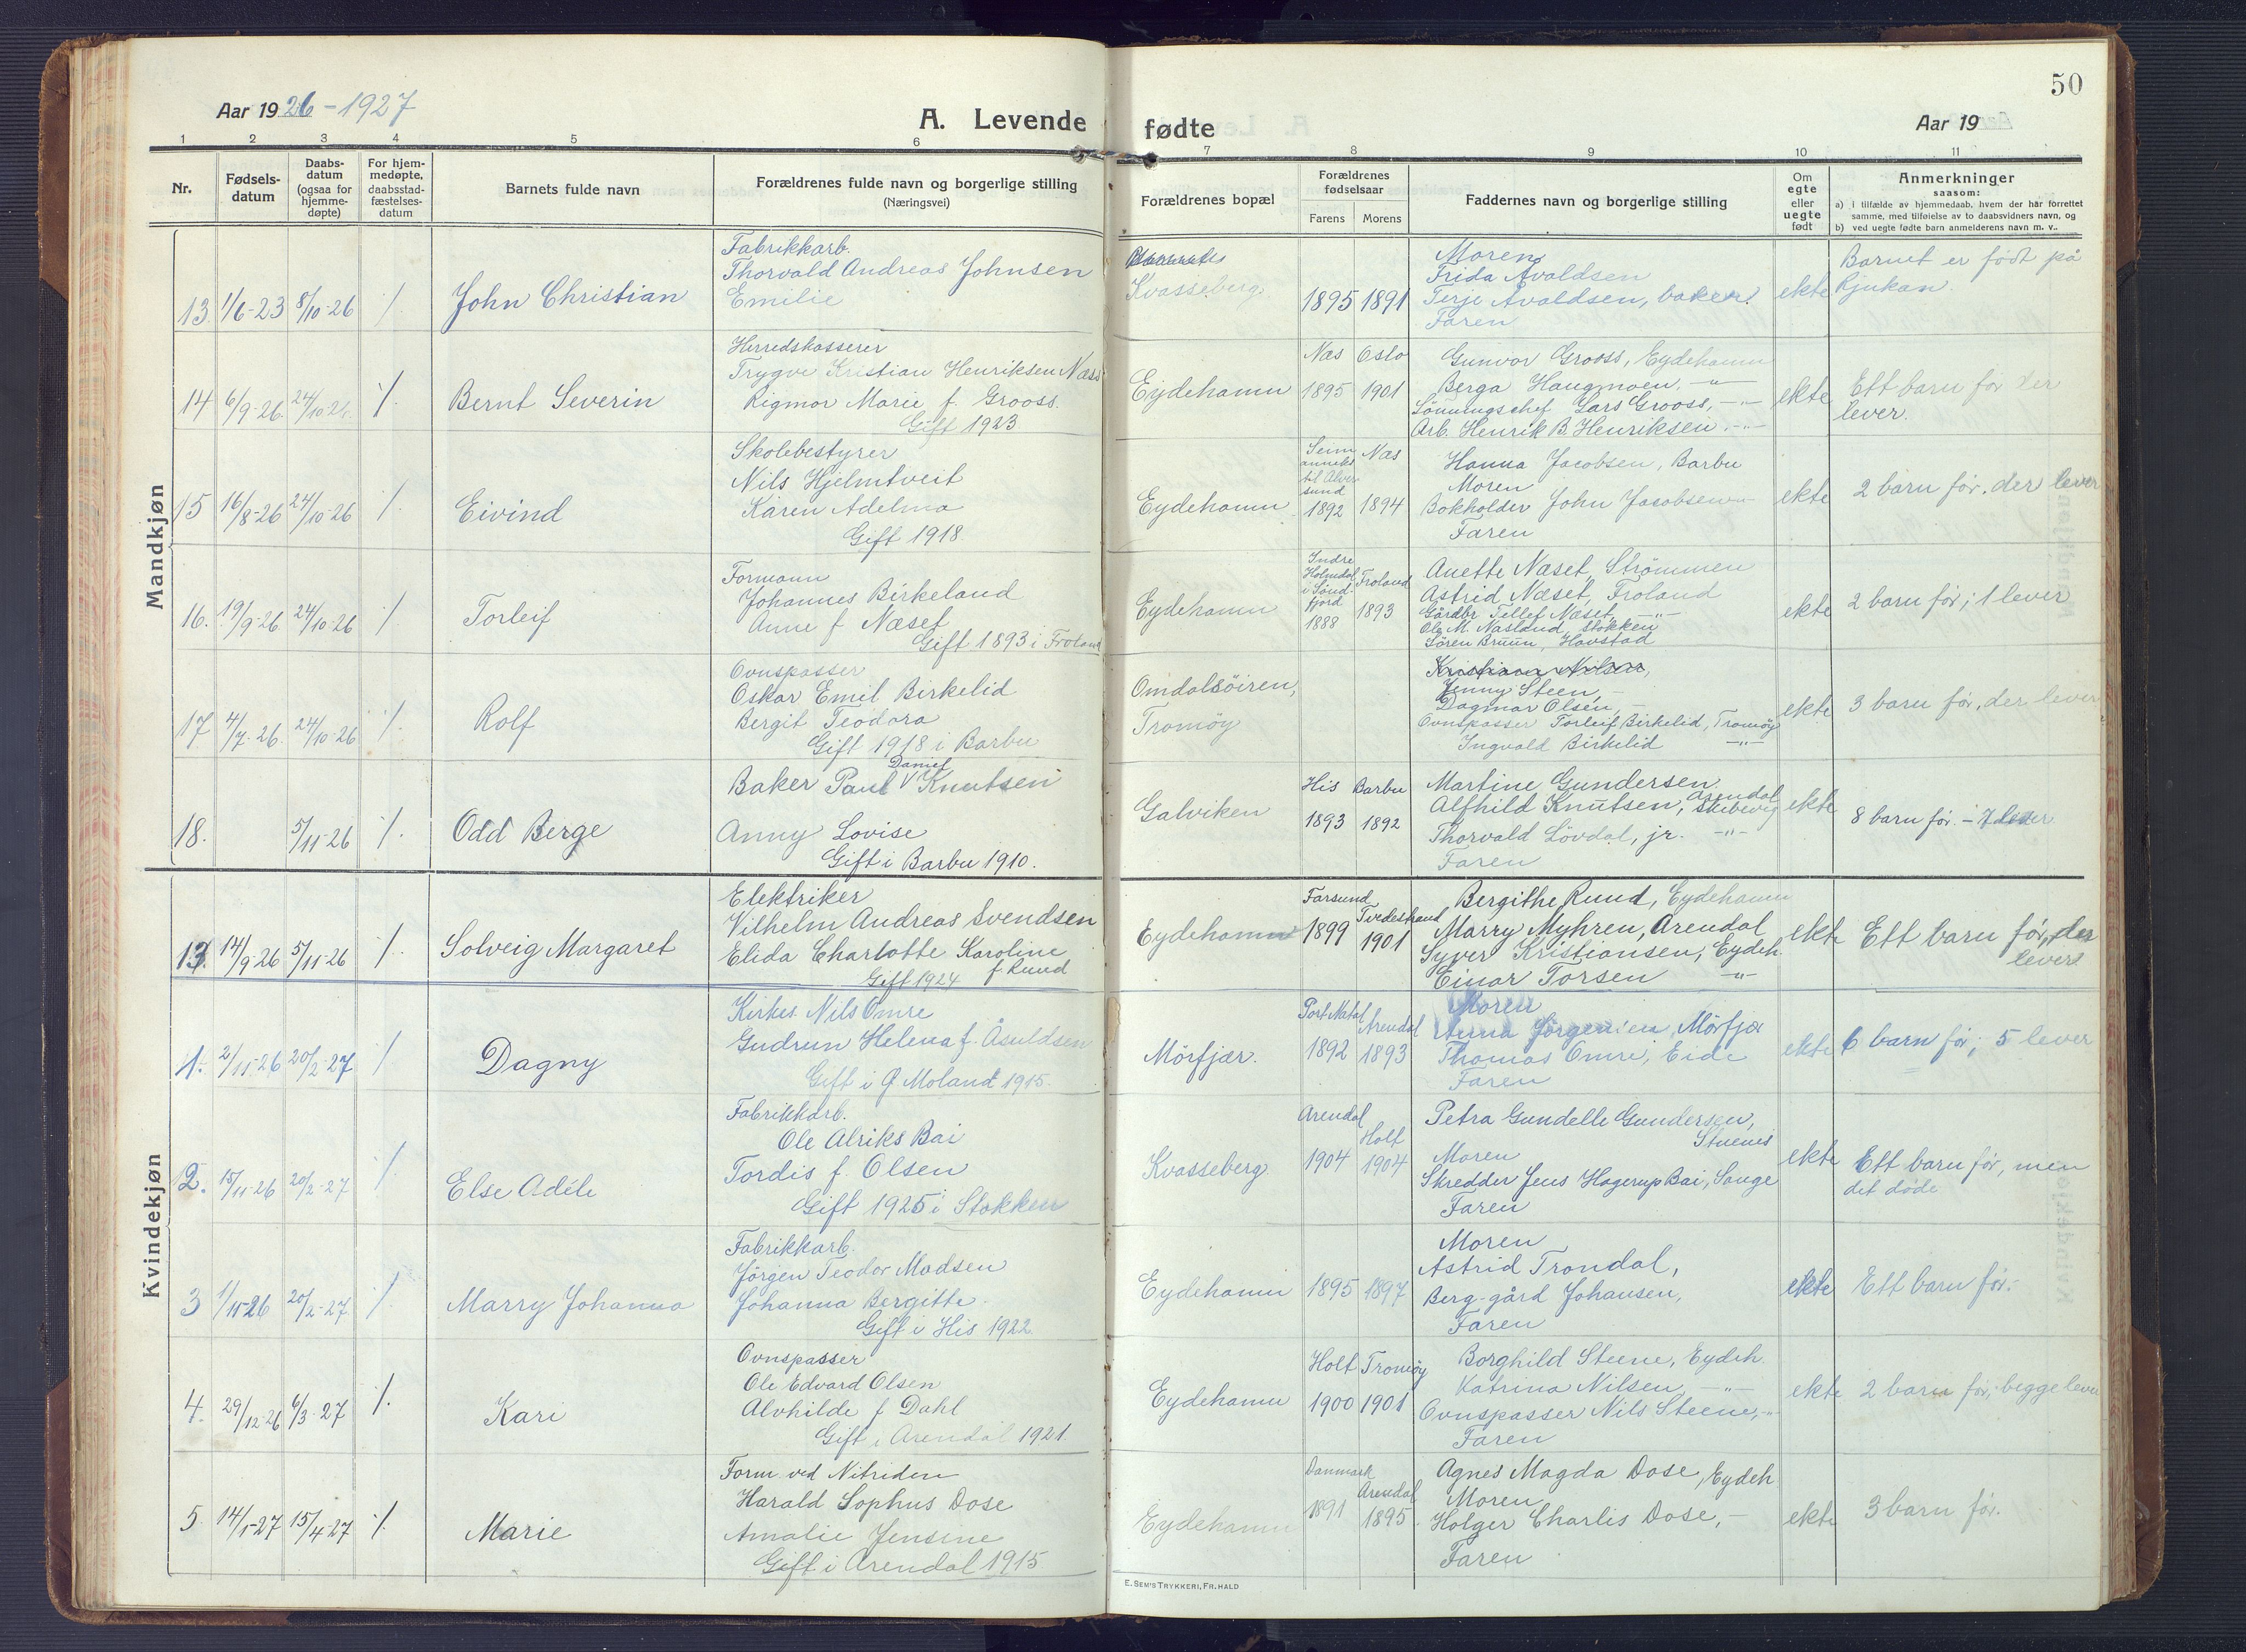 Aar 1926-1927
A. Levende
fødte
Aar 19
50
1 2 3 4 5 6 7 8 9 10 11
Nr.
Fødsels-
datum
Daabs-
datum
(ogsaa for
hjemme-
døpte)
For hjem-
medøpte,
daabsstad-
fæstelses-
datum
Barnets fulde navn
Forældrenes fulde navn og borgerlige stilling
(Næringsvei)
Forældrenes bopæl
Forældrenes
fødselsaar
Farens Morens
Faddernes navn og borgerlige stilling
Om
egte
eller
uegte
født
Anmerkninger
saasom:
a) i tilfælde av hjemmedaab, hvem der har forrettet
samme, med tilføielse av to daabsvidners navn, og
b) ved uegte fødte barn anmelderens navn m. v..
Mandkjøn
13. 1/6-23 8/10-26 ./. John Christian
Fabrikkarb.
Thorvald Andreas Johnsen
Emilie
Kvasseberg
1895 1891
Moren
Frida Avaldsen
Terje Avaldsen, baker
Faren
ekte
Barnet er født på
Rjukan.
14 6/9-26. 24/10-26. ./. Bernt Severin
Herredskasserer
Trygve Kristian Henriksen Næss
Rigmor Marie f. Grooss.
Gift 1923
Eydehamn
Næs Oslo
1895 1901
Gunvor Grooss, Eydehamn
Berga Haugmoen, -"-
Lønningschef Lars Grooss, -"-
Arb. Henrik B. Henriksen. -"-
ekte
Ett barn før der
lever.
15 16/8-26 24/10-26 ./. Eivind
Skolebestyrer
Nils Hjelmtveit
Karen Adelma
Gift 1918
Eydehamn
Seim
anneks
til Alver
sund
1892
Næs
1894
Hanna Jacobsen, Barbu
Moren
Bokholder John Jacobsen -"-
Faren
ekte
2 barn før, der lever
16. 19/9-26 24/10-26 ./. Torleif
Formann
Johannes Birkeland
Anne f Næset
Gift 1893 i Froland
Eydehamn
Indre
Holmdal
i Sønd-
fjord
1888
Froland
1893
Anette Næset, Strømmen
Astrid Næset, Froland
Gårdbr Tellef Næset, -"-
Ole M. Næsland, Stokken
Søren Bruun, Havstad
ekte
2 barn før; 1 lever
17 4/7-26. 24/10-26 ./. Rolf
Ovnspasser
Oskar Emil Birkelid
Bergit Teodora
Gift 1918 i Barbu
Omdalsøiren,
Tromøy
Kristiane Nilsen,
Jenny Steen, -
Dagmar Olsen, -
Ovnspasser Torleif Birkelid, Tromøy
Ingvald Birkelid -"-
ekte
3 barn før, der lever
18. 5/11-26 ./. Odd Berge
Baker Paul Daniel Knutsen
Anny Lovise
Gift i Barbu 1910.
Galviken
His Barbu
1893 1892
Martine Gundersen
Alfhild Knutsen, Arendal
Thorvald Løvdal, jr. -"-
Faren
ekte
8 barn før - 7 lever
Kvindekjøn
13. 14/9-26 5/11-26 ./. Solveig Margaret
Elektriker
Vilhelm Andreas Svendsen
Elida Charlotte Karoline
f. Ruud
Gift 1924
Eydehamn
Farsund Tvedestrand
1899 1901
Bergithe Ruud, Eydehamn
Marry Myhren, Arendal
Syver Kristiansen, Eydeh.
Einar Torsen -"-
ekte
Ett barn før, der
lever
1. 2/11-26 20/2-27 ./. Dagny
Kirkes. Nils Omre
Gudrun Helena f. Åsuldsen
Gift i Ø. Moland 1915.
Mørfjær.
Port Natal Arendal
1892 1893
Moren
Anna Jørgensen, Mørfjær
Thomas Omre, Eide
Faren
ekte
6 barn før; 5 lever
2. 15/11-26 20/2-27 ./. Else Adele
Fabrikkarb.
Ole Alriks Bai
Tordis f. Olsen
Gift 1925 i Stokken
Kvasseberg
Arendal Holt
1904 1904
Petra Gundelle Gundersen,
Stuenes
Moren
Skredder Jens Hagerup Bai, Songe
Faren
ekte
Ett barn før, men
det døde
3 1/11-26 20/2-27 ./. Marry Johanna
Fabrikkarb.
Jørgen Teodor Madsen
Johanna Bergitte.
Gift i His 1922
Eydehamn
1895 1897
Moren
Astrid Trondal,
Berg-gård Johansen,
Faren
ekte
Ett barn før.-
4. 29/12-26 6/3-27 ./. Kari
Ovnspasser
Ole Edvard Olsen
Alvhilde f Dahl
Gift i Arendal 1921.
Eydehamn
Holt Tromøy
1900 1901
Borghild Steene, Eydeh.
Katrina Nilsen -"-
Ovnspasser Nils Steene, -"-
Faren
ekte
2 barn før, begge lever
5. 14/1-27 15/4-27 ./. Marie
Form ved Nitriden
Harald Sophus Dose
Amalie Jensine
Gift i Arendal 1915
Eydehamn
Danmark Arendal
1891 1895
Agnes Magda Dose, Eydeh
Moren
Holger Charlis Dose, -
Faren
ekte
3 barn før.
E. SEM'S TRYKKERI, FR.HALD